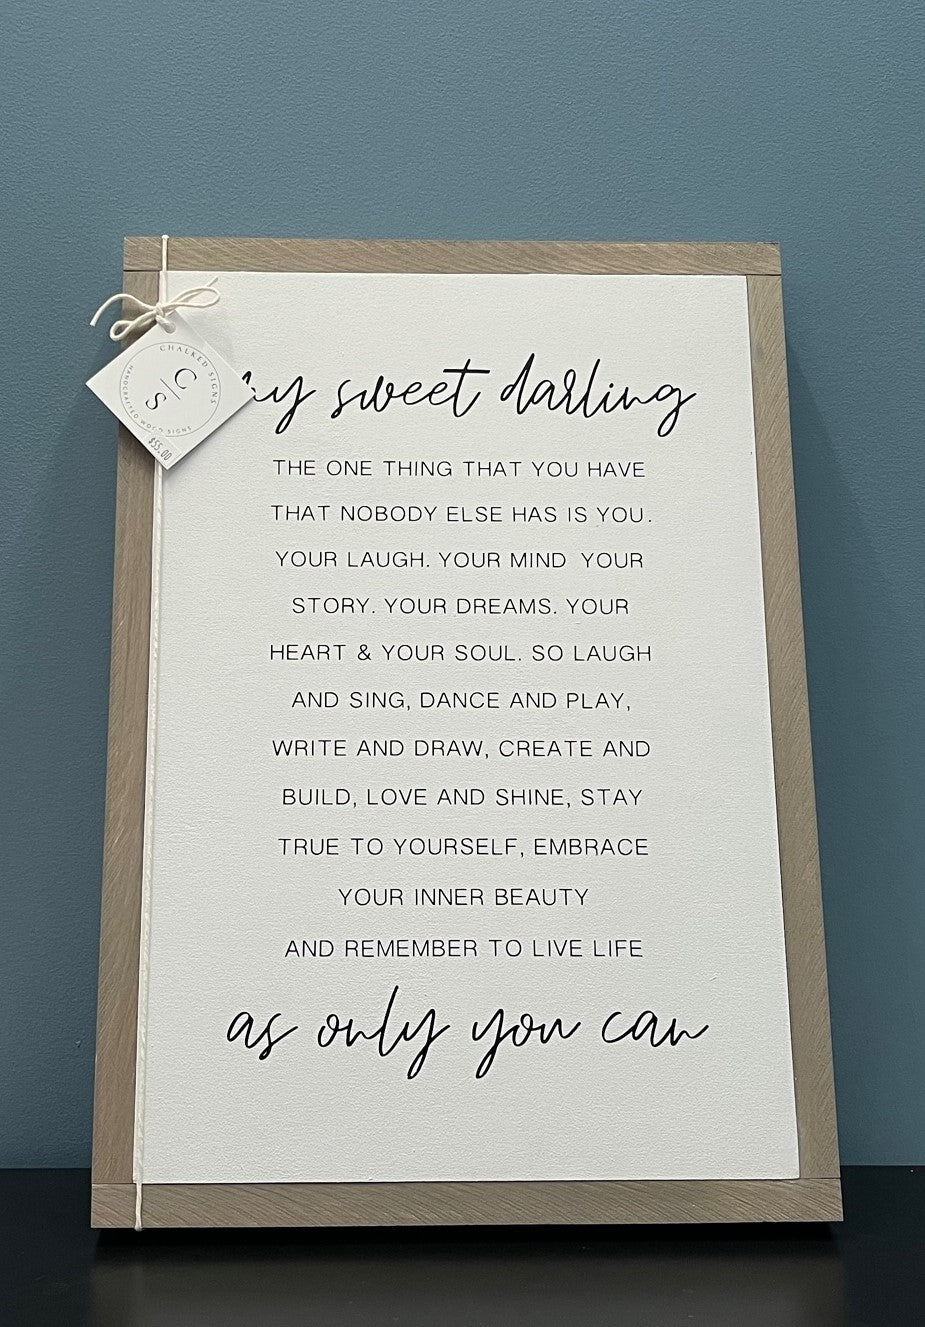 CHALKED SIGNS
C | S
HANDCRAFTED WOOD SIGNS
$55.00
sweet darling
THE ONE THING THAT YOU HAVE
THAT NOBODY ELSE HAS IS YOU.
YOUR LAUGH. YOUR MIND YOUR
STORY. YOUR DREAMS. YOUR
HEART & YOUR SOUL. SO LAUGH
AND SING, DANCE AND PLAY,
WRITE AND DRAW, CREATE AND
BUILD, LOVE AND SHINE, STAY
TRUE TO YOURSELF, EMBRACE
YOUR INNER BEAUTY
AND REMEMBER TO LIVE LIFE
as only you can